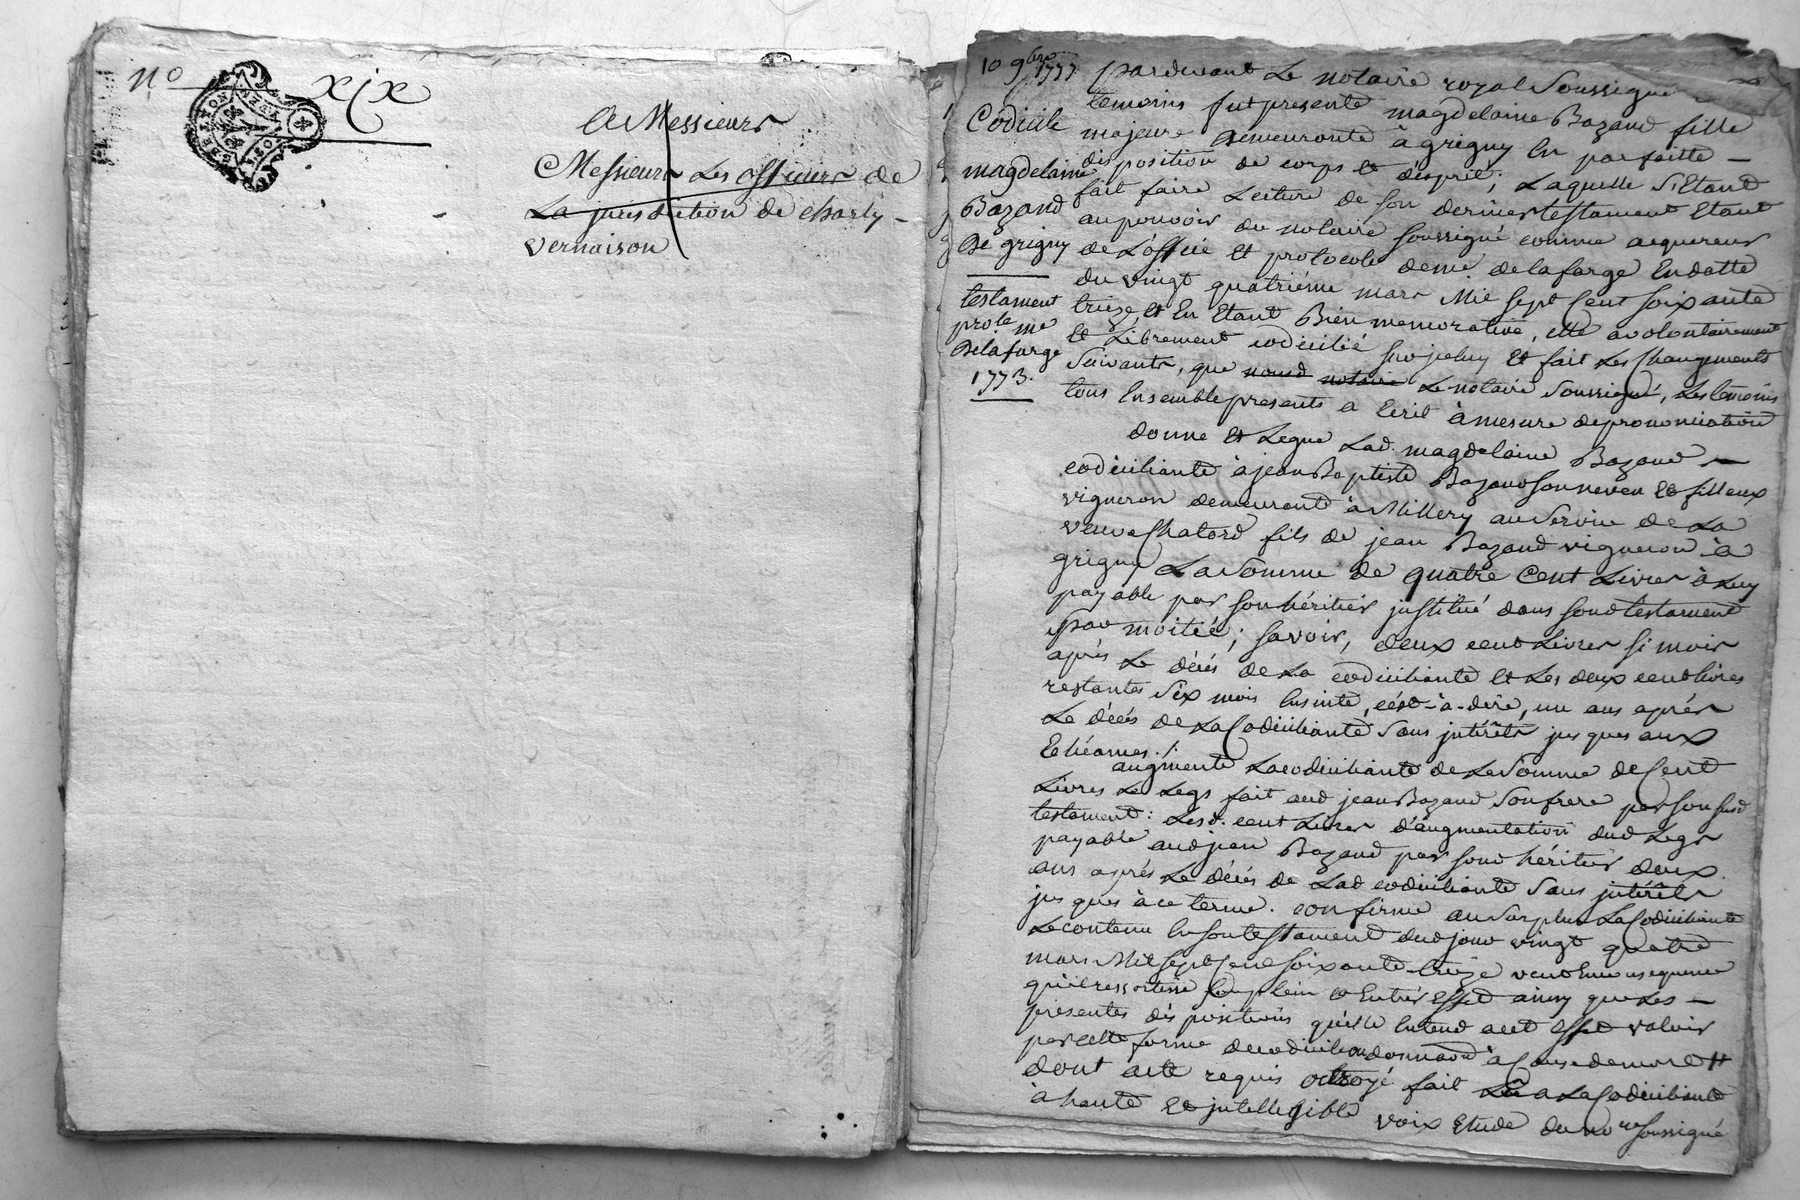 n° xix
A Messieurs
Messieurs Les officiers de
La jurisdiction de charly -
vernaison
10 9bre 1777
Codicile
magdelaine
Bazand
de grigny
testament
prole me
delafarge
1773.
pardevant Le notaire royal Soussigné
temoins fut presente magdelaine Bazand fille
majeure demeurante à grigny En parfaitte -
disposition de corps et désprit; Laquelle S'Etant
fait faire Lecture de son dernier testament Etant
au pouvoir du notaire soussigné comme acquereur
de L'office et protocole de me delafarge En datte
du vingt quatriéme mars Mil sept Cent soixante
treize, et En Etant Bien memorative, elle a volontairement
et Librement codicilié sur jceluy et fait Les Changements
Suivants, que nousd notaire Le notaire Soussigné, Les temoins
tous Ensemble presents a Ecrit à mesure de prononciation
donne et Legue Lad. magdelaine Bazand -
codiciliante à jean Baptiste Bazand son neveu et filleux
vigneron demeurante à Millery au Service de La
veuve Chatard fils de jean Bazand vigneron à
grigny La Somme de quatre Cent Livres à Luy
payable par son héritier jnstitué dans sond testament
par moitié; savoir, deux cent Livres si mois
aprés Le décés de La codiciliante et Les deux cent livres
restantes Six mois Ensuite, cést-à-dire, un ans aprés
Le décés de La Codiciliante Sans jntérêts jusques aux
Echéances ./.
augmente La codiciliante de La Somme de Cent
Livres Le Legs fait aud jean Bazand Son frere par son susd
testament: Lesd. cent Livres d'augmentation dud Legs
payable aud jean Bazand par sond héritier deux
ans aprés Le décés de Lad codiciliante Sans jntérêts
jusques à ce terme. confirme au Surplus La Codiciliante
Le contenu En son testament dud jour vingt quatre
mars Mil Sept Cent soixante-treize veut En consequence
qu'il ressortisse son plein et Entier effet ainsy que Les -
présentes dispositions qu'elle Entend avoir effet valoir
par cette forme de codicile ou donnaon à Cause de mort
dont acte requis octroyé fait Lu a La Codiciliante
à haute et jntellegible voix Etude du nore soussigné